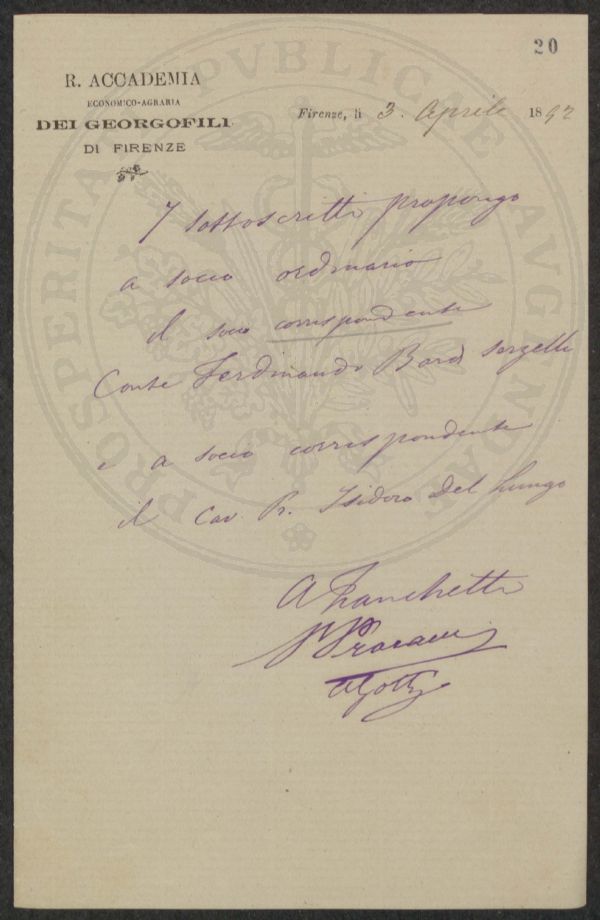 20
R. ACCADEMIA
ECONOMICO-AGRARIA
DEI GEORGOFILI
DI FIRENZE
Firenze, li 3. Aprile 1892
PROSPERITATI PVBLICAE AVGENDAE
I sottoscritti propongo
a socio ordinario
il socio corrispondente
Conte Ferdinando Bardi Serzelli
e a socio corrispondente
il Cav. Pr. Isidoro Del Lungo